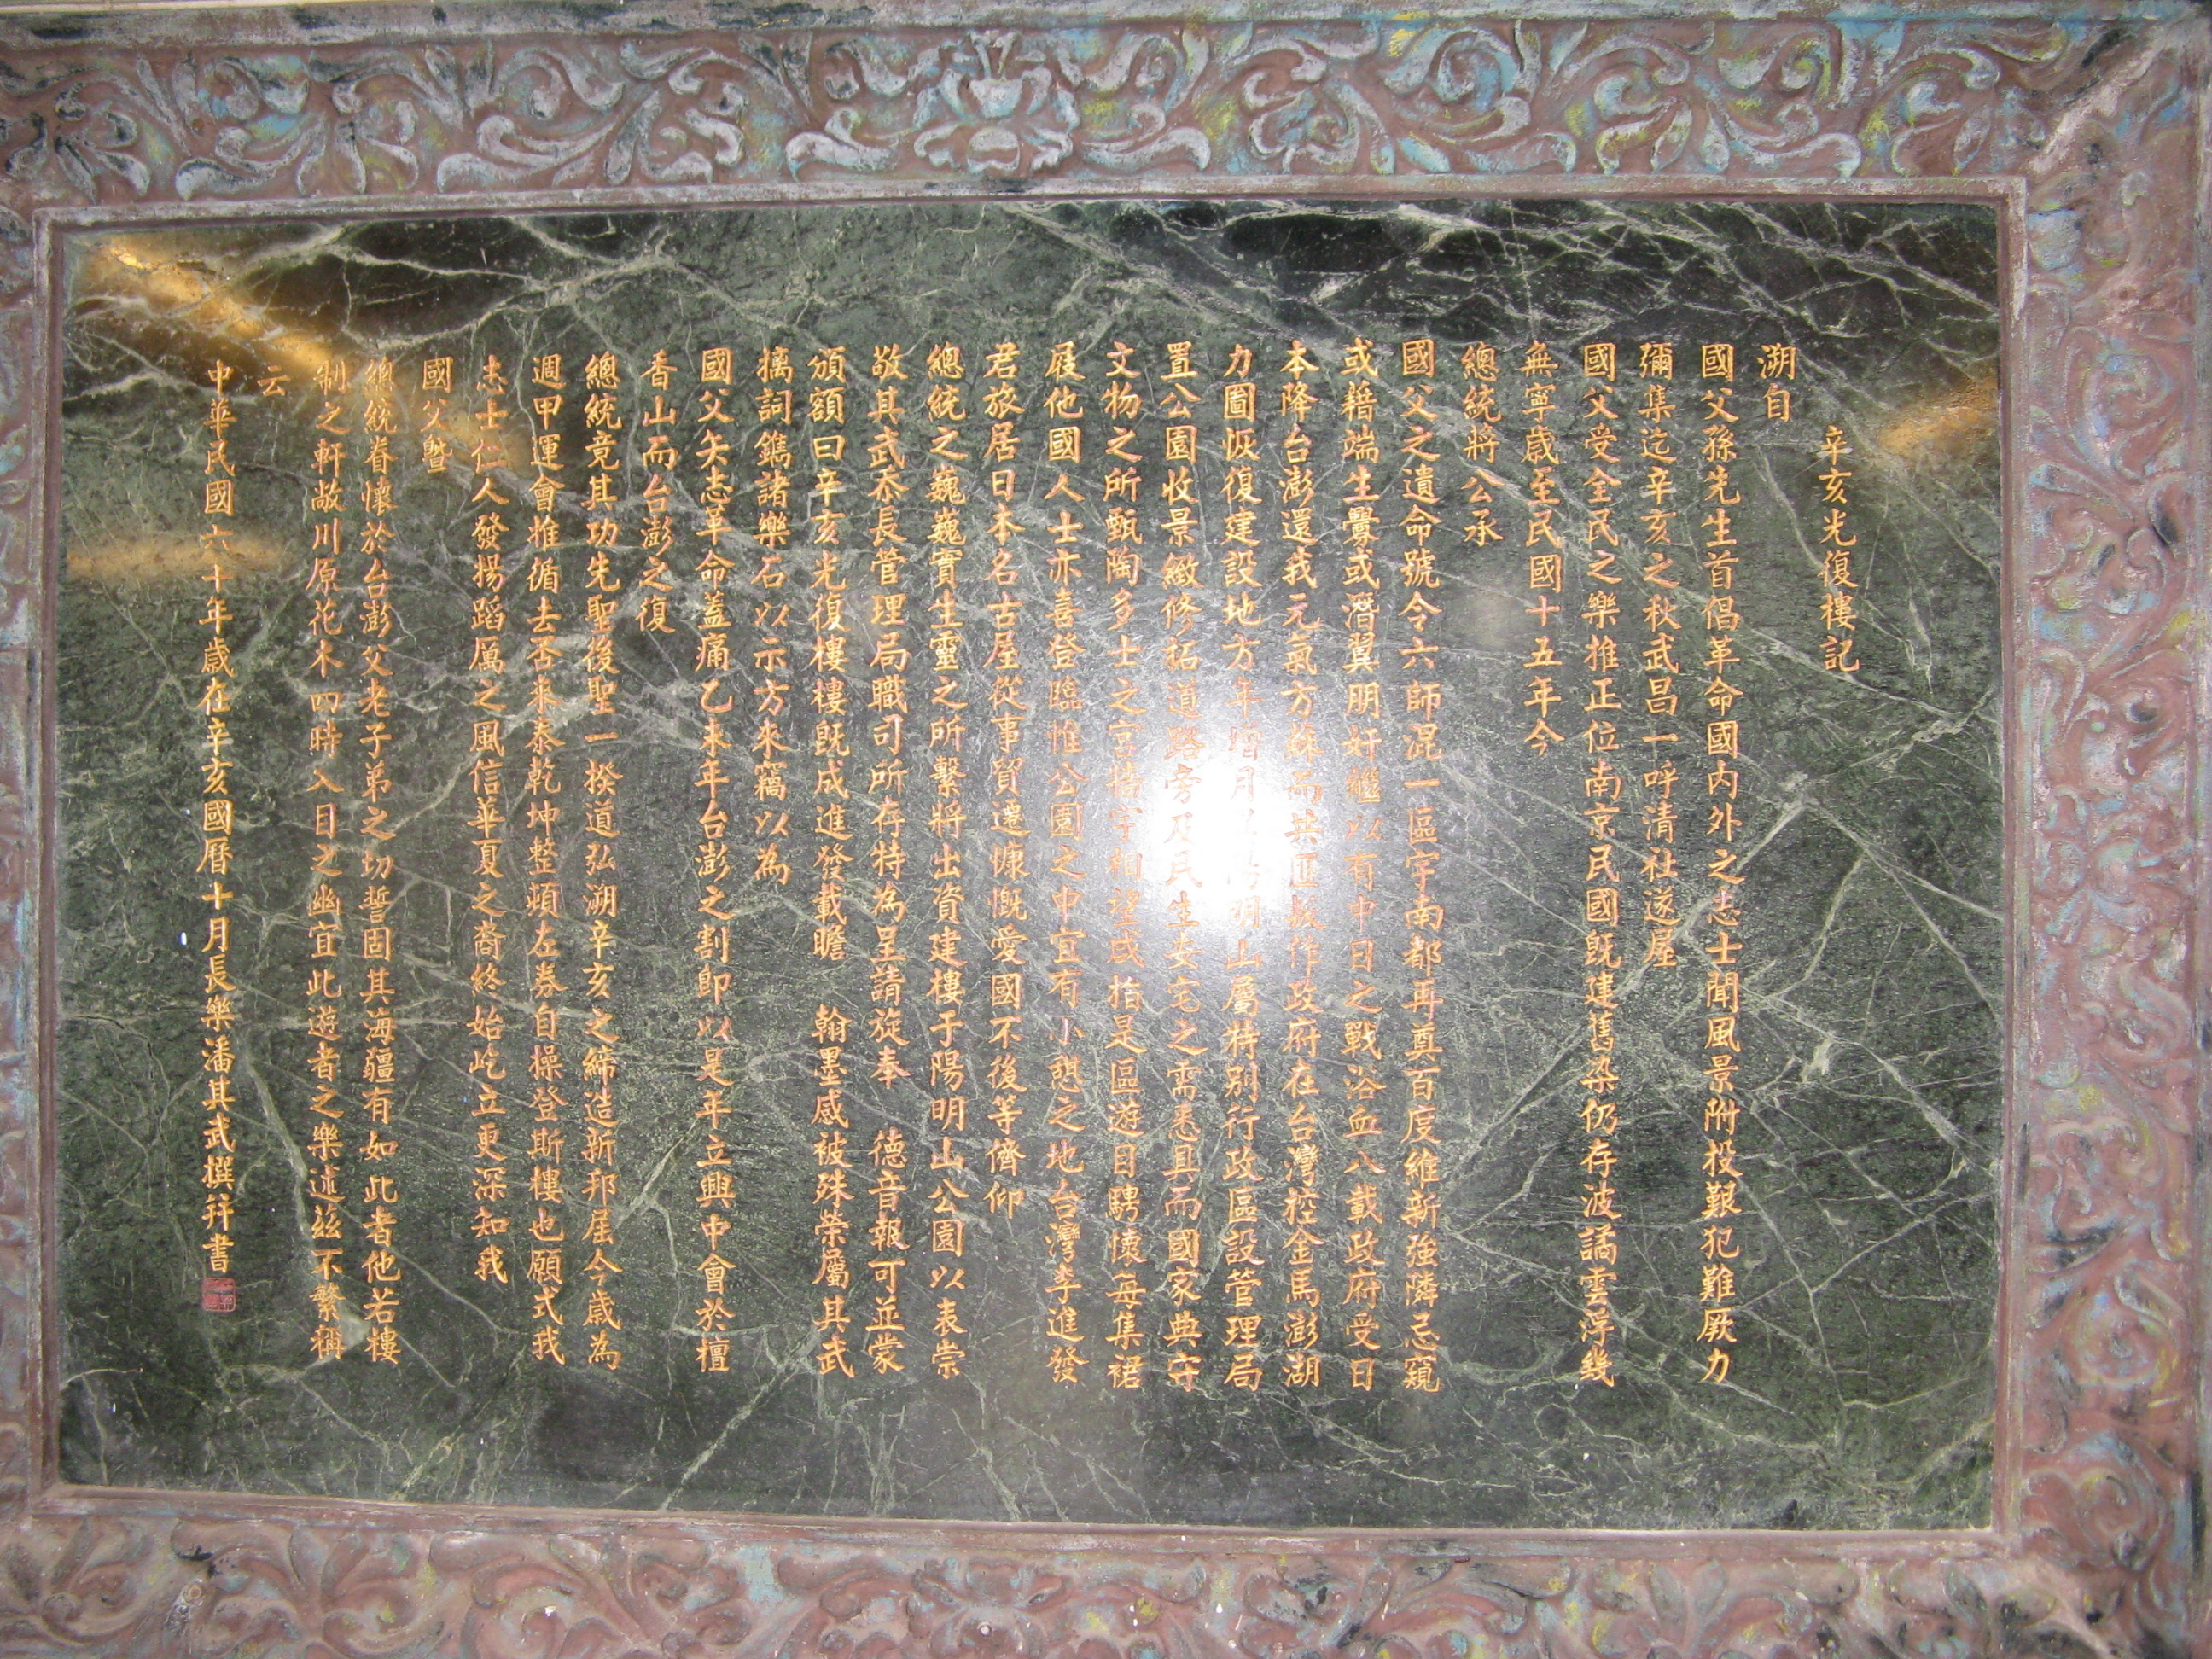 辛亥光復樓記
溯自
國父孫先生首倡革命國內外之志士聞風景附投艱犯難厥力
彌集迄辛亥之秋武昌一呼清社遂屋
國父受全民之樂推正位南京民國既建舊染仍存波譎雲浮幾
無寧歲至民國十五年今
總統蔣 公承
國父之遺命號令六師混一區宇南都再奠百度維新強隣忌窺
或藉端生釁或潛翼朋奸繼以有中日之戰浴血八載政府受日
本降台澎還我元氣方蘇而共匪叛作政府在台灣控金馬澎湖
力圖恢復建設地方年增月明山屬特別行政區設管理局
置公園收景緻修拓道路旁及民生安宅之需悉具而國家典守
文物之所甄陶多士之宮牆宇相望咸指是區遊目騁懷每集裙
屐他國人士亦喜登臨惟公園之中宜有小憩之地台灣李進發
君旅居日本名古屋從事貿遷慷慨愛國不後等儕仰
總統之巍巍實生靈之所繫將出資建樓于陽明山公園以表崇
敬其武忝長管理局職司所存特為呈請旋奉 德音報可並蒙
頒額曰辛亥光復樓樓既成進發載瞻 翰墨感被殊榮屬其武
摛詞鐫諸樂石以示方來竊以為
國父矢志革命蓋痛乙未年台澎之割即以是年立興中會於檀
香山而台澎之復
總統竟其功先聖後聖一揆道弘溯辛亥之締造新邦屆今歲為
週甲運會推循去否來泰乾坤整頓左券自操登斯樓也願式我
志士仁人發揚蹈厲之風信華夏之裔終始屹立更深知我
國父暨
總統眷懷於台澎父老子弟之切誓固其海疆有如此者他若樓
制之軒敞川原花木四時入目之幽宜此遊者之樂述茲不繁稱
云
中華民國六十年歲在辛亥國曆十月長樂潘其武撰并書